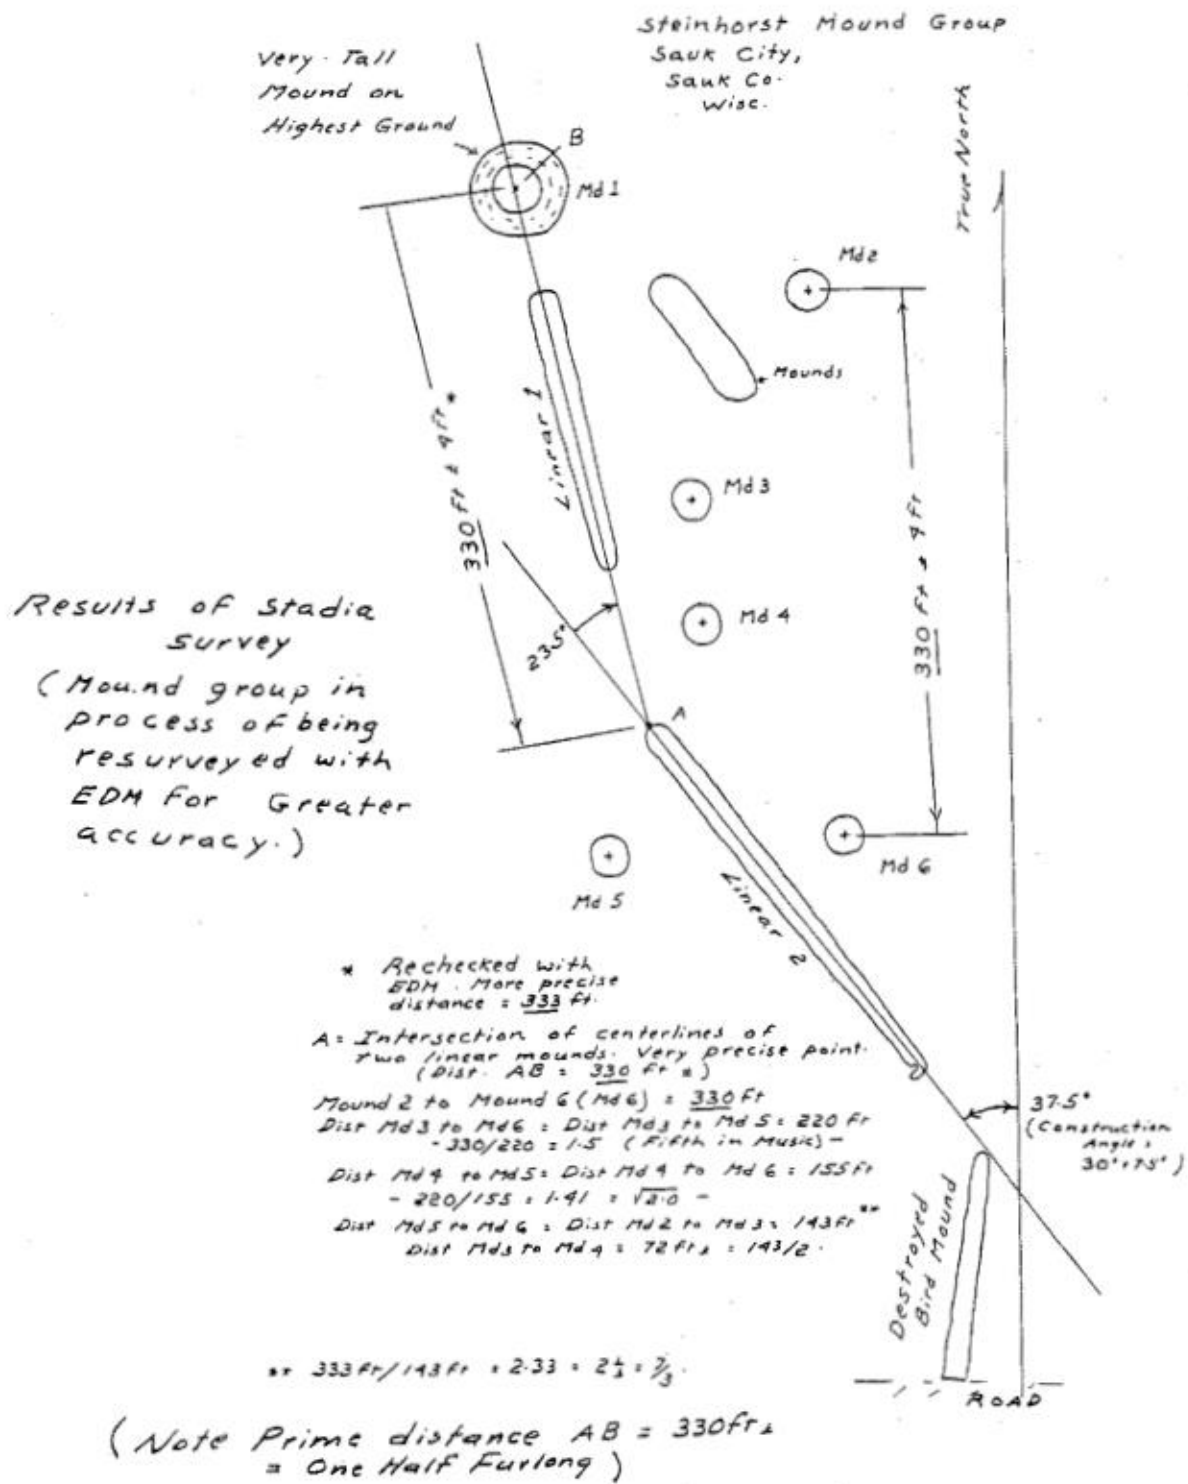 Steinhorst Mound Group
Sauk City,
Sauk Co.
Wisc.
Very Tall
Mound on
Highest Ground
B
Md 1
True North
Md 2
Mounds
Linear 1
330 ft ± 4 ft *
Md 3
330 ft ± 4 ft
Md 4
23.5°
A
Results of Stadia
Survey
(Mound group in
process of being
resurveyed with
EDM for Greater
accuracy.)
Md 5
Md 6
Linear 2
* Rechecked with
EDM. More precise
distance = 333 ft.
A = Intersection of centerlines of
two linear mounds. Very precise point.
(Dist. AB = 330 ft *)
Mound 2 to Mound 6 (Md 6) = 330 ft
Dist Md 3 to Md 6 = Dist Md 3 to Md 5 = 220 ft
- 330/220 = 1.5 (Fifth in Music) -
Dist Md 4 to Md 5 = Dist Md 4 to Md 6 = 155 ft
- 220/155 = 1.41 = √2.0 -
Dist Md 5 to Md 6 = Dist Md 2 to Md 3 = 143 ft **
Dist Md 3 to Md 4 = 72 ft ± = 143/2.
37.5°
(Construction
Angle =
30° + 7.5°)
Destroyed
Bird Mound
ROAD
** 333 ft / 143 ft = 2.33 = 2 1/3 = 7/3.
(Note Prime distance AB = 330 ft ±
= One Half Furlong)